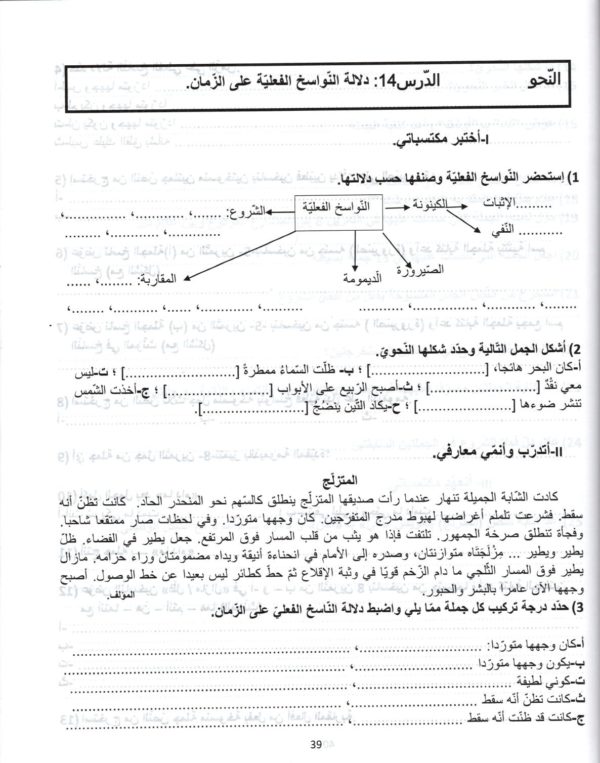 النّحو الدّرس14: دلالة النّواسخ الفعليّة على الزّمان.
I-أختبر مكتسباتي.
1) إستحضر النّواسخ الفعليّة وصنفها حسب دلالتها.
النّواسخ الفعليّة
الشّروع: .......،........،.........،
الكينونة
الإثبات
النّفي
المقاربة: ........، ......
الدّيمومة
الصّيرورة
2) أشكل الجمل التّالية وحدّد شكلها النّحويّ.
أ-كان البحر هائجا، [...............] ؛ ب- ظلّت السّماءُ ممطرةً [...............] ؛ ت-ليس
معي نقدٌ [...............] ؛ ث-أصبح الرّبيع على الأبواب [...............] ؛ ج-أخذت الشّمس
تنشر ضوءها [...............] ؛ ح-يكاد التّين ينضجُ [...............].
II-أتدرّب وأنمّي معارفي.
المتزلّج
كادت الشّابة الجميلة تنهار عندما رأت صديقها المتزلّج ينطلق كالسّهم نحو المنحدر الحادّ. كانت تظنّ أنه
سقط. فشرعت تلملم أغراضها لهبوط مدرج المتفرّجين. كان وجهها متورّدا. وفي لحظات صار ممتقعا شاحبا.
وفجأة تنطلق صرخة الجمهور. تلتفت فإذا هو يثب من قلب المسار فوق المرتفع. جعل يطير في الفضاء. ظلّ
يطير ويطير ... مزْلَجَتاه متوازنتان، وصدره إلى الأمام في انحناءة أنيقة ويداه مضمومتان وراء حزامه. مازال
يطير فوق المسار الثّلجي ما دام الزّخم قويّا في وثبة الإقلاع ثمّ حطّ كطائر ليس بعيدا عن خط الوصول. أصبح
وجهها الآن عامرا بالبشر والحبور.
المؤلف
3) حدّد درجة تركيب كل جملة ممّا يلي واضبط دلالة النّاسخ الفعليّ على الزّمان.
أ-كان وجهها متورّدا: ...............، ...............
ب-يكون وجهها متورّدا ...............، ...............
ت-كوني لطيفة ...............، ...............
ث-كانت تظنّ أنّه سقط ...............، ...............
ج-كانت قد ظنّت أنّه سقط ...............، ...............
39